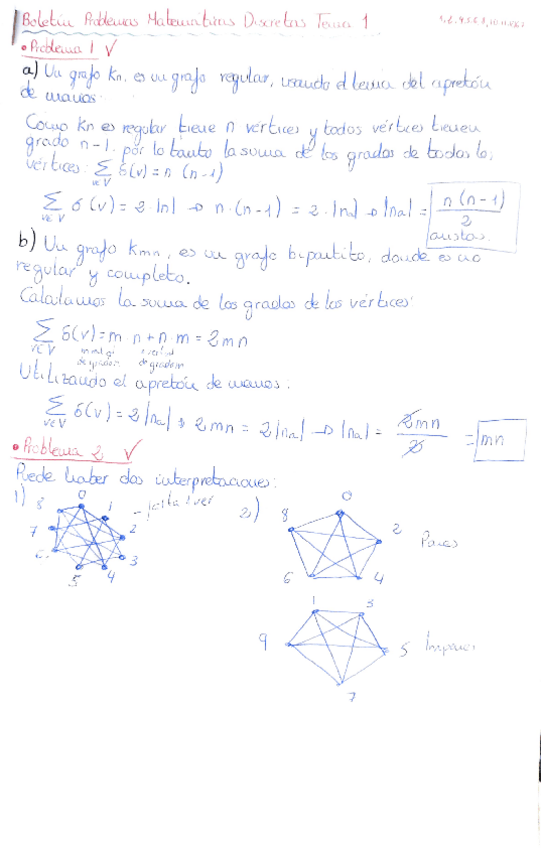 Boletín Problemas Matemáticas Discretas Tema 1
• Problema 1 ✓
a) Un grafo Kn, es un grafo regular, usando el lema del apretón
de manos.
Como Kn es regular tiene n vértices y todos vértices tienen
grado n-1. por lo tanto la suma de los grados de todos los
vértices: Σ v∈V δ(v) = n (n-1)
Σ v∈V δ(v) = 2·|n| → n·(n-1) = 2·|na| → |na| = n(n-1)/2
aristas.
b) Un grafo Kmn, es un grafo bipartito, donde es no
regular y completo.
Calculamos la suma de los grados de los vértices:
Σ v∈V δ(v) = m·n + n·m = 2mn
de grado n
de grado m
Utilizando el apretón de manos:
Σ v∈V δ(v) = 2|na| → 2mn = 2|na| → |na| = 2mn/2 = mn
• Problema 2 ✓
Puede haber dos interpretaciones:
1)
0
1
2
3
4
5
6
7
8
2)
0
2
4
6
8
Pares
1
3
5
7
9
Impares